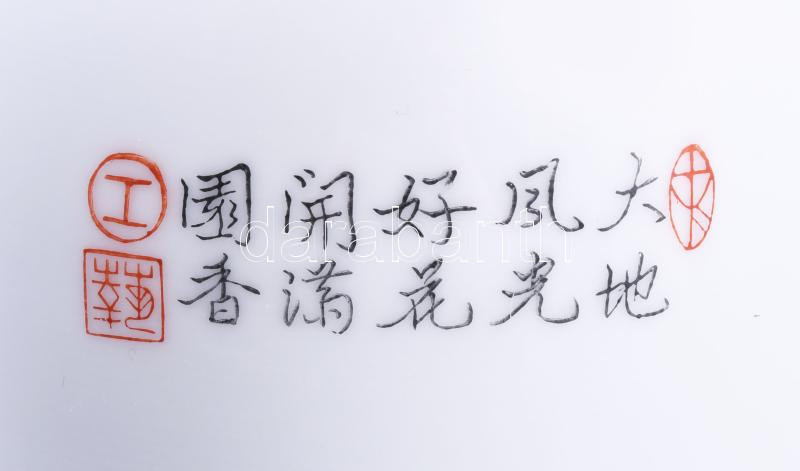 大地
風光
好花
開滿
園香
工
藝
darabanth